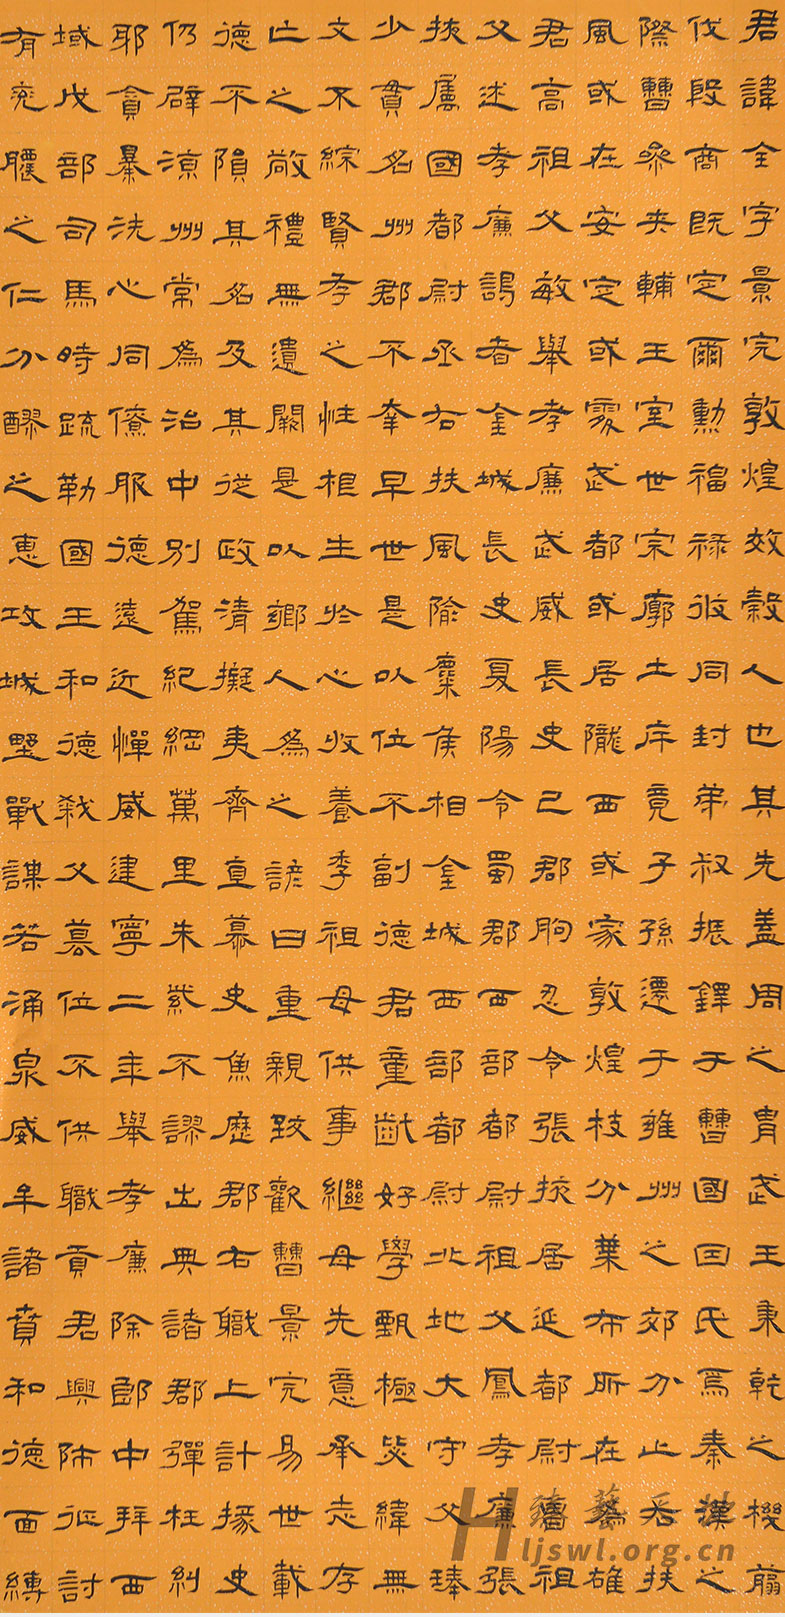 君諱全字景完敦煌效穀人也其先蓋周之胄武王秉乾之機翦
伐殷商既定爾勲福祿攸同封弟叔振鐸于曹國因氏焉秦漢之
際曹參夾輔王室世宗廓土斥竟子孫遷于雍州之郊分止右扶
風或在安定或處武都或居隴西或家敦煌枝分葉布所在為雄
君高祖父敏舉孝廉武威長史巴郡朐忍令張掖居延都尉曾祖
父述孝廉謁者金城長史夏陽令蜀郡西部都尉祖父鳳孝廉張
掖屬國都尉丞右扶風隃麋侯相金城西部都尉北地大守父琫
少貫名州郡不幸早世是以位不副德君童齔好學甄極毖緯無
文不綜賢孝之性根生於心收養季祖母供事繼母先意承志存
亡之敬禮無遺闕是以鄉人為之諺曰重親致歡曹景完易世載
德不隕其名及其從政清擬夷齊直慕史魚歷郡右職上計掾史
仍辟涼州常為治中別駕紀綱萬里朱紫不謬出典諸郡彈枉糾
邪貪暴洗心同僚服德遠近憚威建寧二年舉孝廉除郎中拜西
域戊部司馬時疏勒國王和德弒父篡位不供職貢君興師征討
有兗膿之仁分醪之惠攻城野戰謀若涌泉威牟諸賁和德面縛
ljswl.org.cn